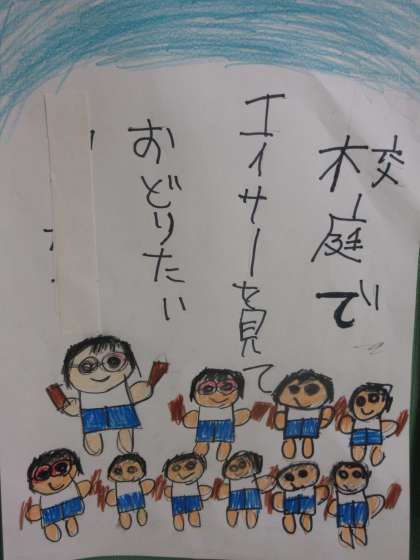 校庭で
エイサーを見て
おどりたい